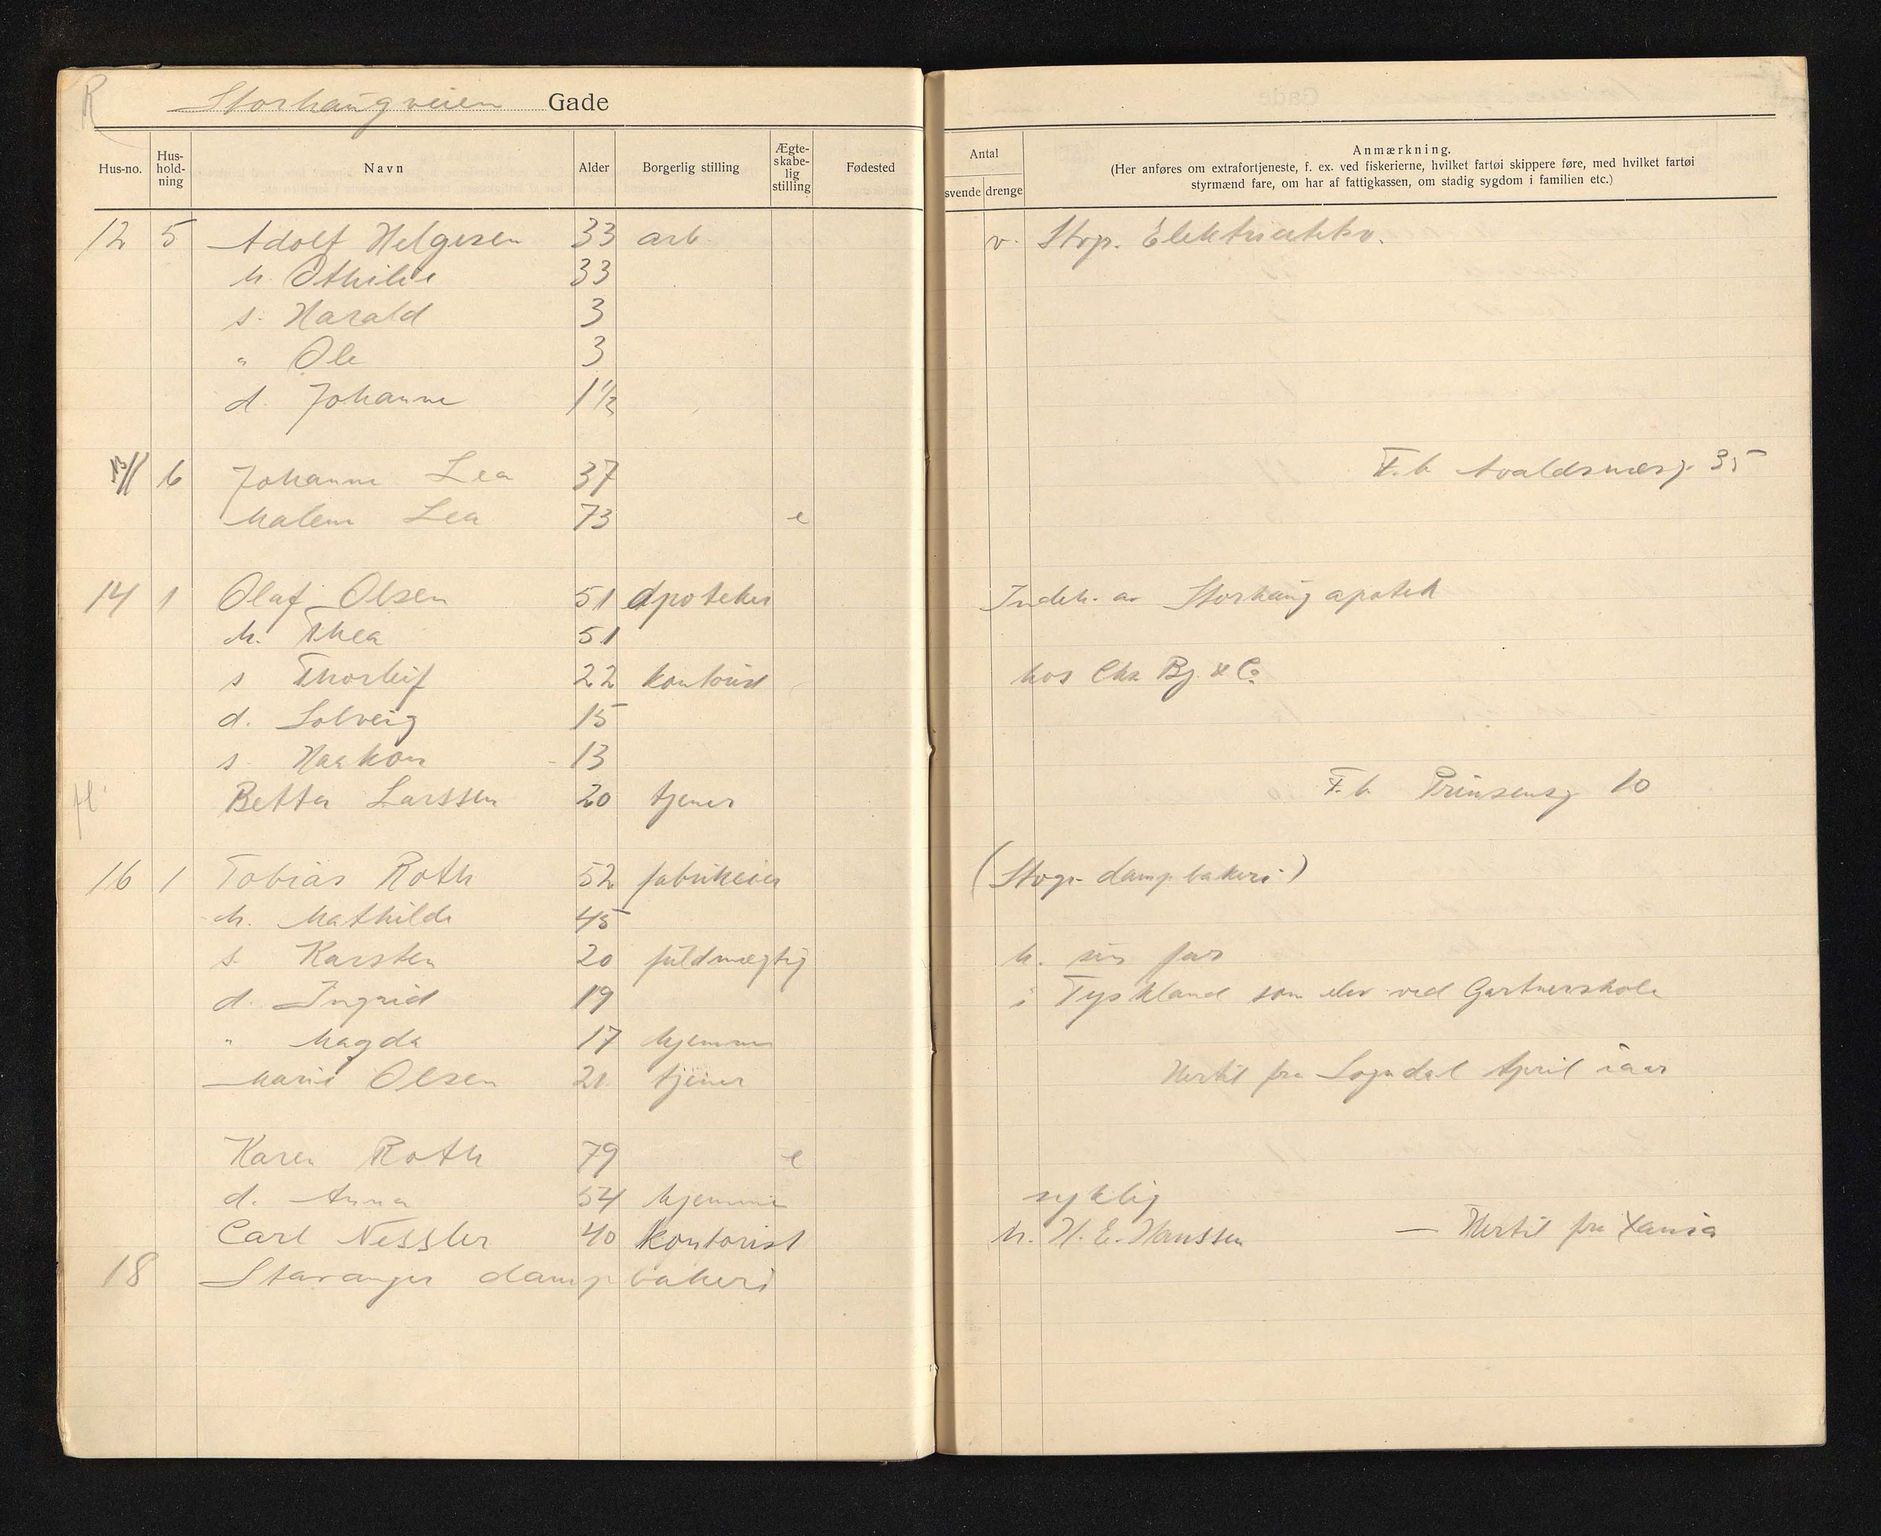 R
Storhaugveien Gade
Hus-no. Hus-hold-ning Navn Alder Borgerlig stilling Ægte-skabe-lig stilling Fødested Antal svende drenge Anmærkning.
(Her anføres om extrafortjeneste, f. ex. ved fiskerierne, hvilket fartøi skippere føre, med hvilket fartøi
styrmænd fare, om har af fattigkassen, om stadig sygdom i familien etc.)
12 5 Adolf Helgesen 33 arb. v. Stvg. Elektricitetsv.
h. Othilie 33
s. Harald 3
" Ole 3
d. Johanne 1 1/2
6 Johanne Lea 37 F. b. Avaldsnesg. 35
Malene Lea 73 e
14 1 Olaf Olsen 51 Apoteker Indeh. av Storhaug apotek
h. Thea 51
s Thorleif 22 kontorist hos Chr. Bj. & Co
d. Solveig 15
s. Haakon 13
Betta Larssen 20 tjener F. b. Prinsensg 10
16 1 Tobias Roth 52 fabrikeier (Stvgr dampbakeri)
h. Mathilde 45
s. Karsten 20 fuldmægtig h. sin far
d. Ingrid 19 i Tyskland som elev ved Gartnerskole
" Magda 17 hjemme
Marie Olsen 21 tjener Hertil fra Sogndal April iaar
Karen Roth 79 e
d. Anna 54 hjemme syklig
Carl Nessler 40 kontorist h. H. E. Hanssen — Hertil fra Xania
18 Stavanger dampbakeri